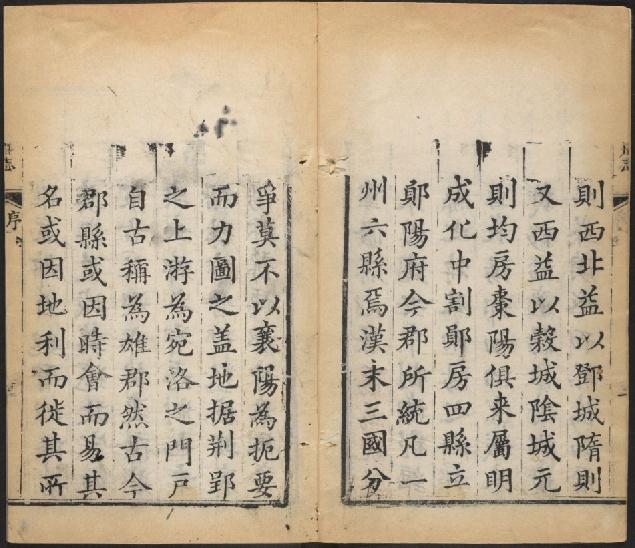 則西北益以鄧城隋則
又西益以穀城陰城元
則均房棗陽俱来屬明
成化中割鄖房四縣立
鄖陽府今郡所統凡一
州六縣焉漢末三國分
爭莫不以襄陽為扼要
而力圖之盖地据荆郢
之上游為宛洛之門戶
自古稱為雄郡然古今
郡縣或因時會而易其
名或因地利而徙其所
序